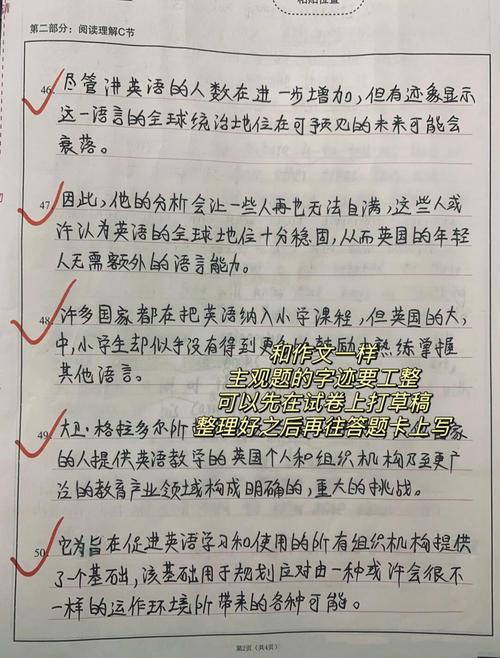 粘贴位置
第二部分：阅读理解C节
46. 尽管讲英语的人数在进一步增加，但有迹象显示
这一语言的全球统治地位在可予见的未来可能会
衰落。
47. 因此，他的分析会让一些人再也无法自满，这些人或
许认为英语的全球地位十分稳固，从而英国的年轻
人无需额外的语言能力。
48. 许多国家都在把英语纳入小学课程，但英国的大，
中，小学生却似乎没有得到更
熟练掌握
和作文一样
其他语言。
主观题的字迹要工整
可以先在试卷上打草稿
整理好之后再往答题卡上写
49. 大卫·格拉多尔所
家
的人提供英语教学的英国个人和组织机构乃至更广
泛的教育产业领域构成明确的，重大的挑战。
50. 它为旨在促进英语学习和使用的所有组织机构提供
了个基础，该基础用于规划应对由一种或许会很不
一样的运作环境所带来的各种可能。
第2页（共4页）